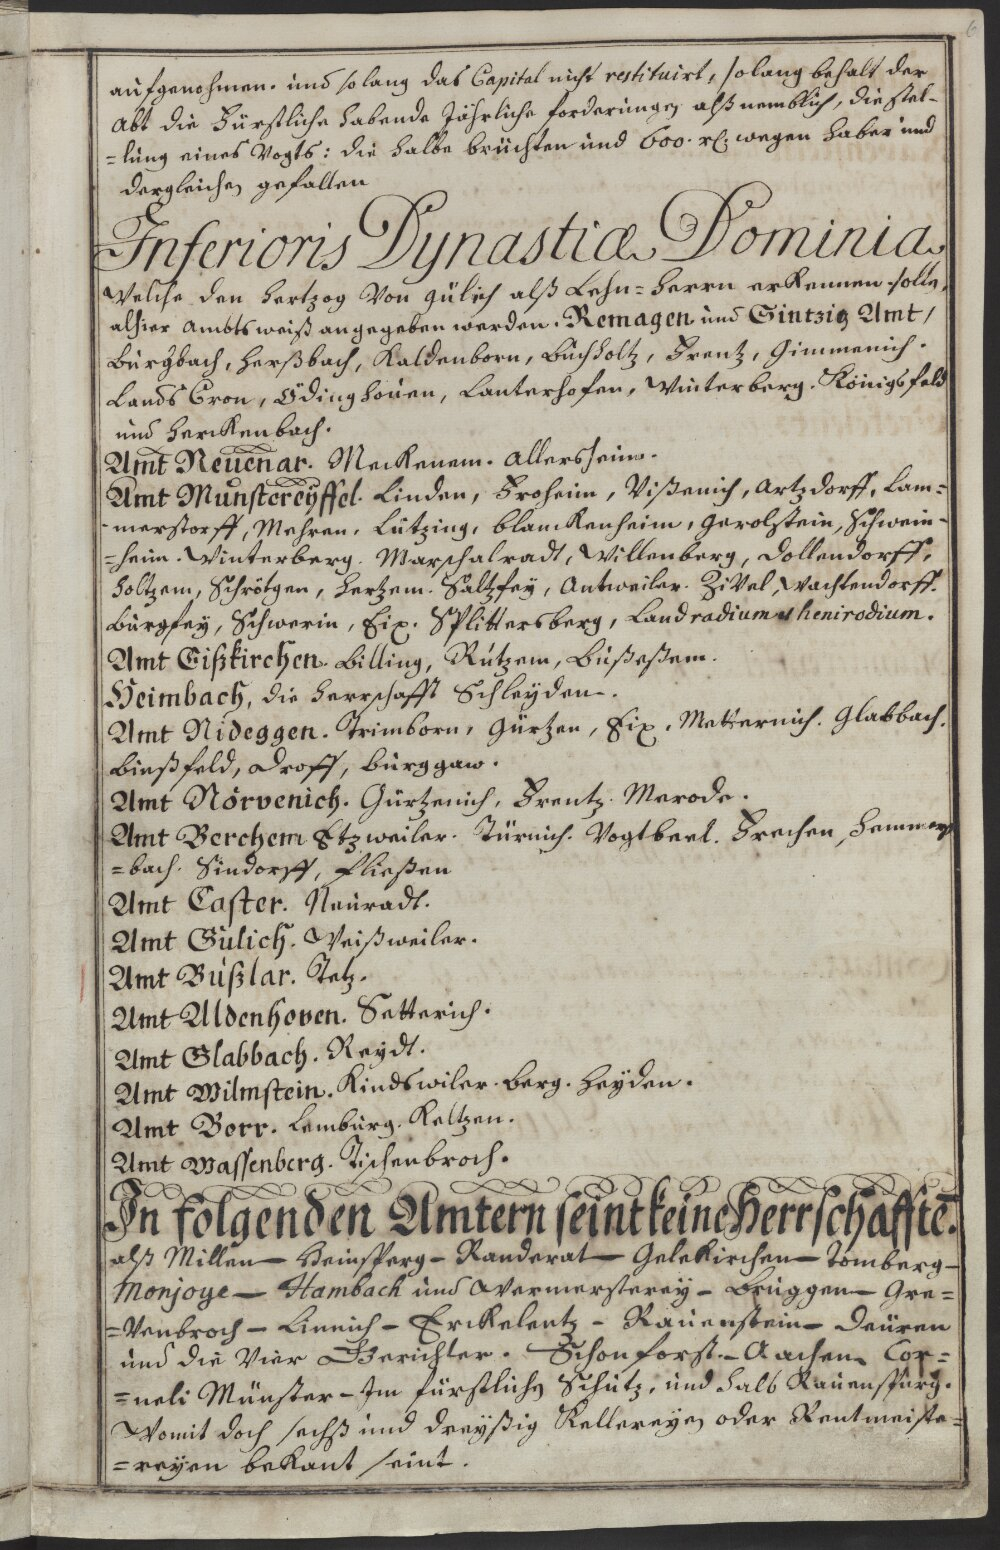 6
aufgenohmen. und solang das Capital nicht restituirt, solang behalt der
Abt die Fürstliche habende Jährliche forderungen alß nemblich, die stel-
=lung eines Vogts: die halbe brüchten und 600. rl: wegen haber und
dergleichen gefallen
Inferioris Dynastiæ Dominia
Welche den Hertzog Von Gülich alß Lehn=Herrn erkennen solle,
alhier ambtsweiß angegeben werden. Remagen und Sintzig Amt,
Burgbach, Herßbach, Kaldenborn, Buchholtz, Frentz, Gimmenich.
Lands Cron, Ödinghoven, Lanterhofen, Winterberg. Königsfeld
und Herckenbach.
Amt Neuenar. Meckenem. Allersheim.
Amt Münstereyffel. Linden, Froheim, Vißenich, Artzdorff, Lam=
=merstorff, Mehren, Lützing, Blanckenheim, Gerolstein, Schwein-
=heim. Winterberg. Marschalradt, Willenberg, Dollendorff,
Holtzem, Schrötgen, Hertzem. Saltzfey, Antweiler. Zivel, Wachtendorff.
Burgfey, Schwerin, Eix. Splittersberg, Landradium et henirodium.
Amt Eißkirchen. Billing, Rützem, Büßeßem.
Heimbach, die Herrschafft Schleyden.
Amt Nideggen. Trimborn, Gürtzen, Eix, Metternich. Glabbach.
Binßfeld, Droff, Burggaw.
Amt Nörvenich. Gürtzenich, Frentz. Merode.
Amt Berchem Etzweiler. Türnich. Vogtbeel. Frechen, Hemmers
=bach. Sindorff, Fließen
Amt Caster. Neuradt.
Amt Gülich. Weißweiler.
Amt Büßlar. Tetz.
Amt Aldenhoven. Setterich.
Amt Glabbach. Reydt.
Amt Wilmstein. Kindswiler. Berg. Heyden.
Amt Borr. Lemburg. Keltzen.
Amt Wassenberg. Tischenbroch.
In folgenden Amtern seint keine Herrschaffte.
alß Millen — Heinsperg — Randerat — Gelekirchen — Tomberg —
Monjoye — Hambach und Wermersterey — Brüggen — Gre=
=Venbroch — Linnich — Erckelentz — Rauenstein — Deüren
und die Vier Gerichter. Schonforst — Aachen Cor=
=neli Münster — Im fürstlichen Schutz, und halb Rauenspurg.
Womit doch sechß und dreyßig Kellereyen oder Rentmeiste=
=reyen bekant seint.